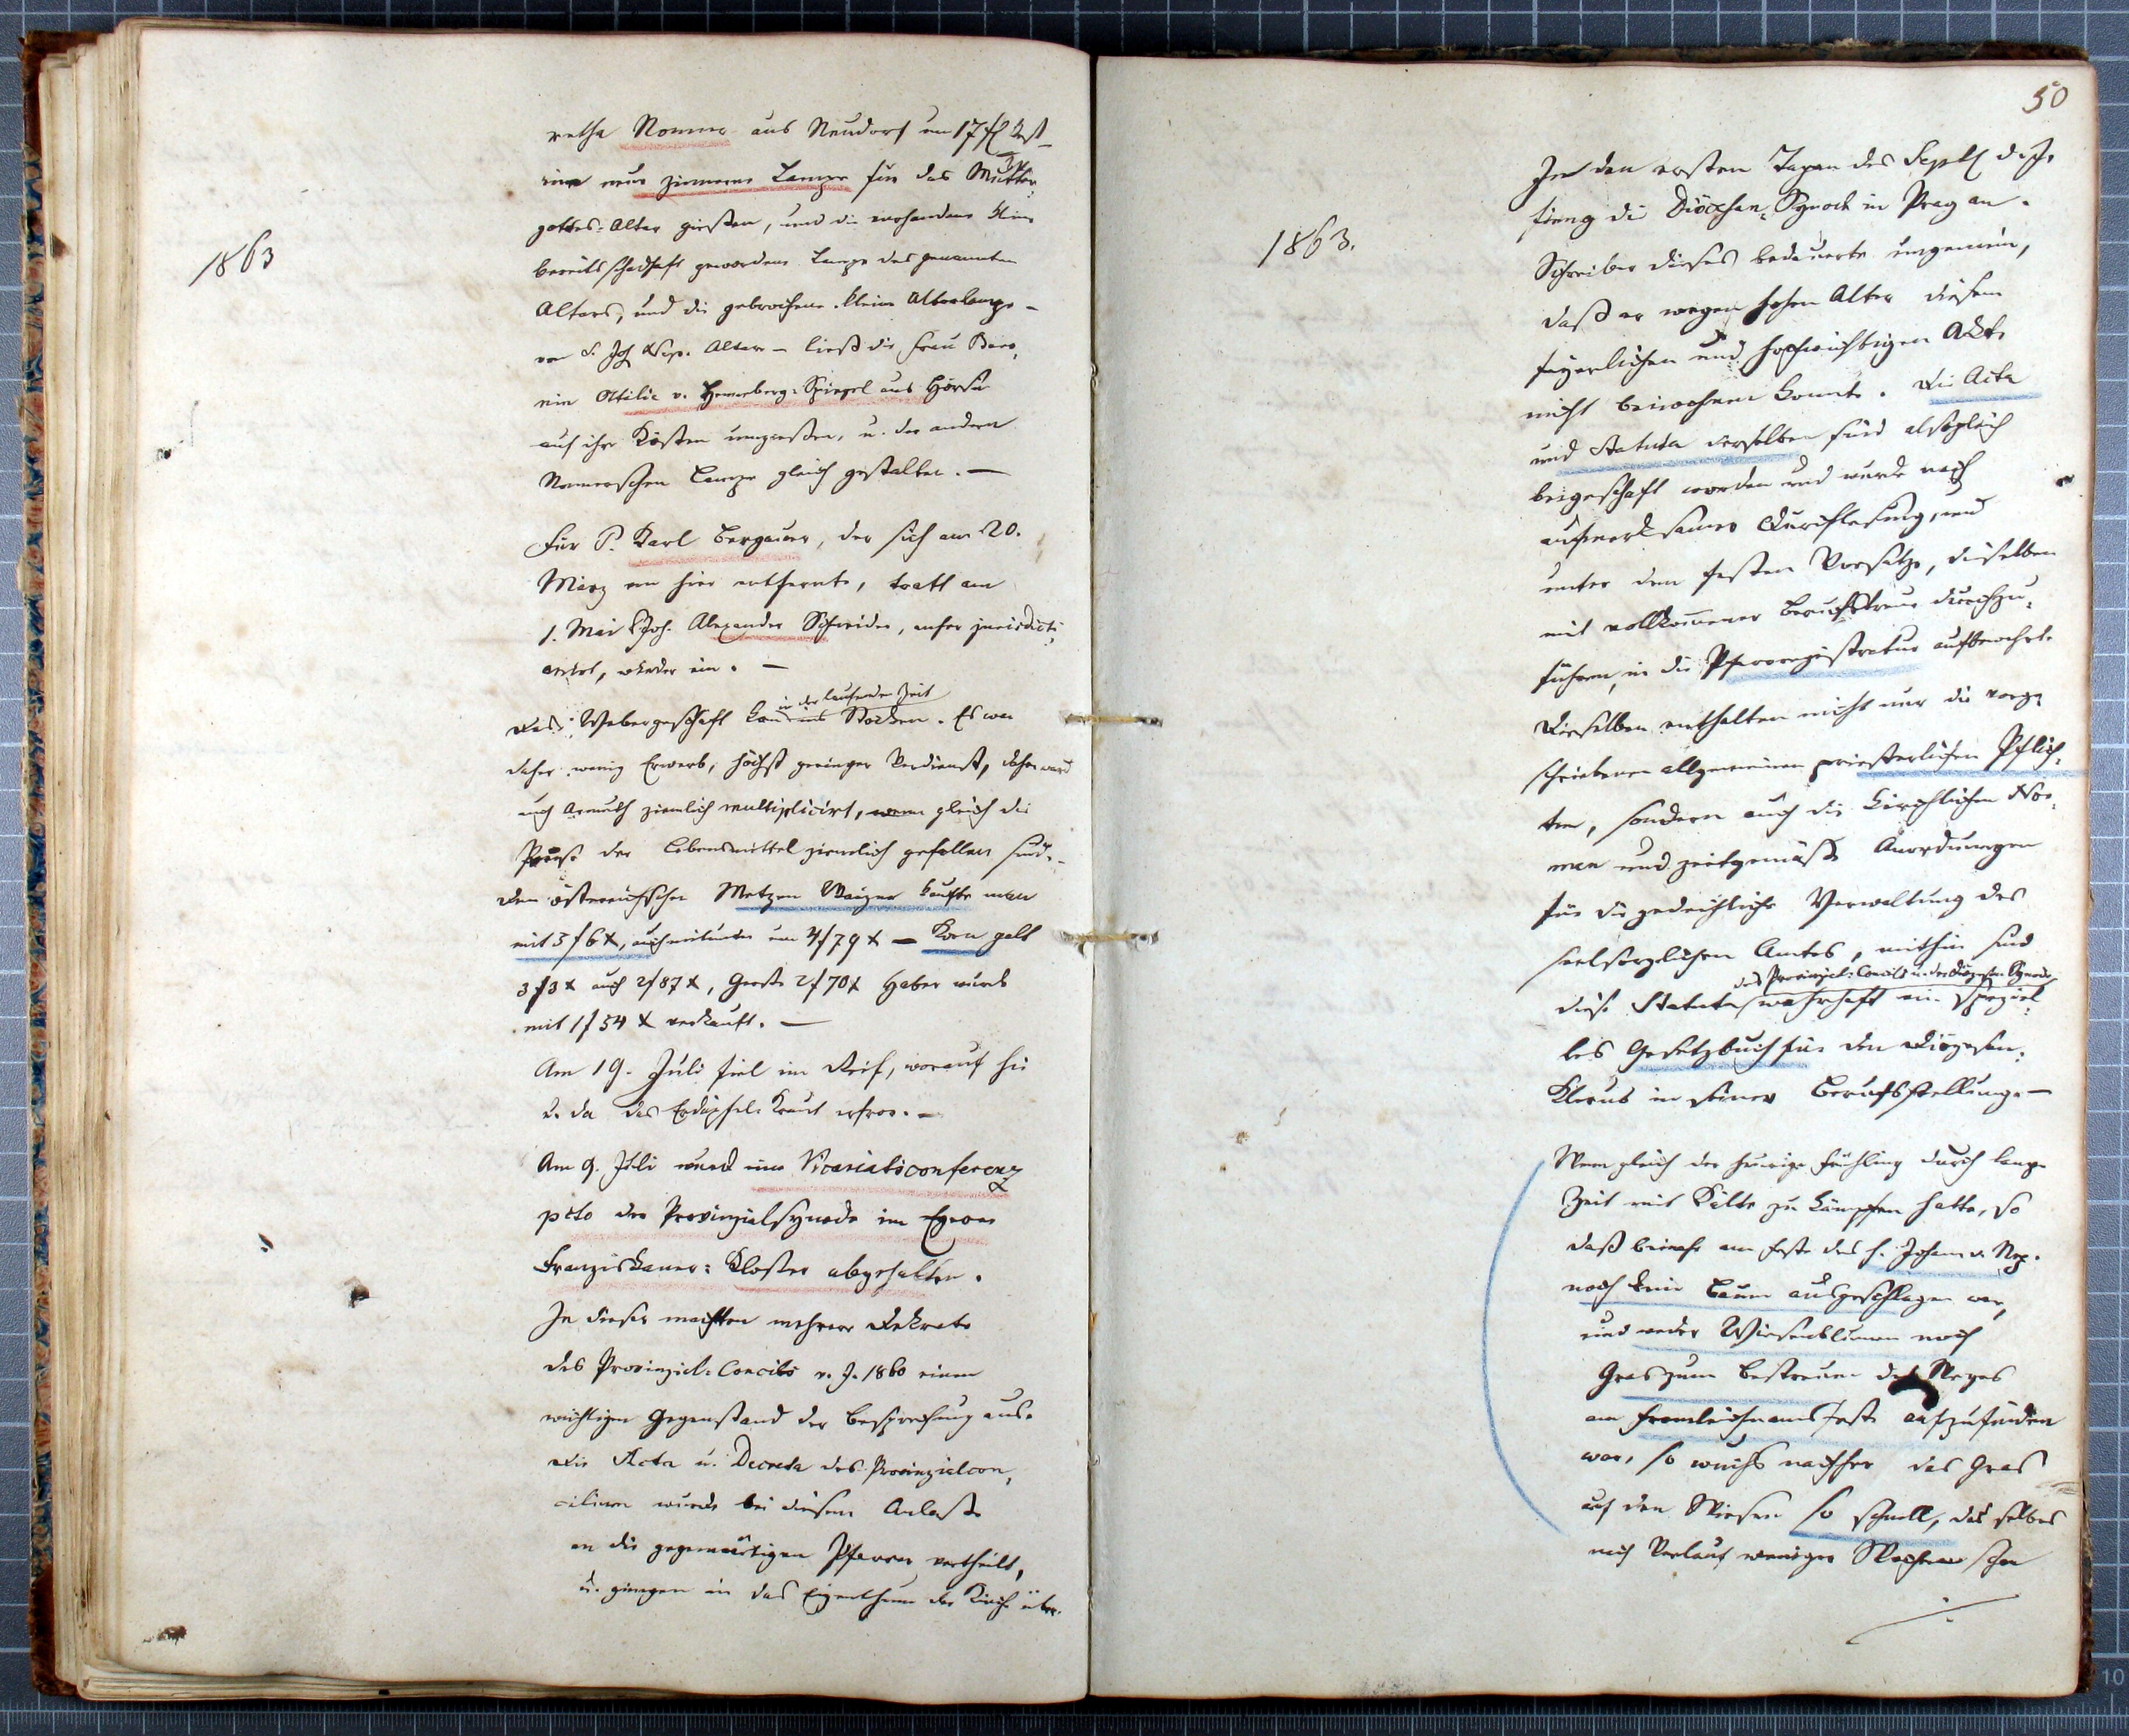 1863
retha Nonner aus Neudorf um 17 fl Oest.
eine neue zinnerne Lampe für das Mutter
gottes-Altar gießen, und die vorhandene kleine
bereits schadhaft gewordene Lampe des genannten
Altars, und die gebrochene kleine Altarlampe –
vom S. Joh. Nep. Altar – ließ die Frau Baro,
nin Ottilie v. Henneberg-Spiegel aus
auf ihre Kosten umgießen, u. der andern
Nonnerschen Lampe gleich gestalten. —
Für P. Karl Bergauer, der sich am 20.
März von hier entfernte, tratt am
1. Mai Joh. Alexander Schneider,
wieder ein. —
Das Webergeschäft kam in der laufenden Zeit ins Stocken. Es war
daher wenig Erwerb, höchst geringer Verdienst, daher ward
auch Armuth ziemlich multiplicirt, wenn gleich die
Preise der Lebensmittel ziemlich gefallen sind. –
Den österreichischen Metzen Waizen kaufte man
mit 5 f 6 x, auch mitunter um 4 f 79 x — Korn galt
3 f 3 x auch 2 f 87 x, Gerste 2 f 70 x Haber wurde
mit 1 f 54 x verkauft. —
Am 19. Juli fiel ein Reif, worauf hie
u. da das Erdäpfel-Kraut erfror. –
Am 9. Juli wurde eine Vicariatsconferenz
pcto der Provinzialsynode im Egerer
Franziskaner-Kloster abgehalten.
In dieser machten mehrere Dekrete
des Provinzial-Concils v. J. 1860 einen
wichtigen Gegenstand der Besprechung aus.
Die Acta u. Decreta des Provinzialcon,
ciliums wurde bei diesem Anlaße
an die gegenwärtigen Pfarrer vertheilt,
u. giengen in das Eigenthum der Kirche über.
50
1863.
In den ersten Tagen des Septb d. J.
fieng die Diöcesan-Synode in Prag an.
Schreiber dieses bedauerte ungemein,
daß er wegen hohen Alter diesem
feyerlichen und hochwichtigen Akte
nicht beiwohnen konnte. Die Acta
und Statuta derselben sind alsogleich
beigeschaft worden und wurde nach
aufmerksamer Durchlesung, und
unter dem festen Vorsatze, dieselben
mit vollkommener Berufstreue durchzu,
führen, in die Pfarrregistratur aufbewahrt.
Dieselben enthalten nicht nur die vorge,
schriebenen allgemeinen priesterlichen Pflich,
ten, sondern auch die kirchlichen Nor,
men und zeitgemäße Anordnungen
für die gedeihliche Verwaltung des
seelsorglichen Amtes, mithin sind
des Provinzial-Concils u. der Diözesan Synode
diese Statute wahrhaft ein speziel,
les Gesetzbuch für den Diözesan-
Klerus in seiner Berufsstellung. —
Wenn gleich der heurige Frühling durch lange
Zeit mit Kälte zu kämpfen hatte, so
daß beinahe am Feste des h. Johann v. Nep.
noch kein Baum ausgeschlagen war,
und weder Wiesenblumen noch
Gras zum Bestreuen des Weges
am Fronleichnamsfeste aufzufinden
war, so wuchs nachher das Gras
auf den Wiesen so schnell, daß selbes
nach Verlauf weniger Wochen schon
./.